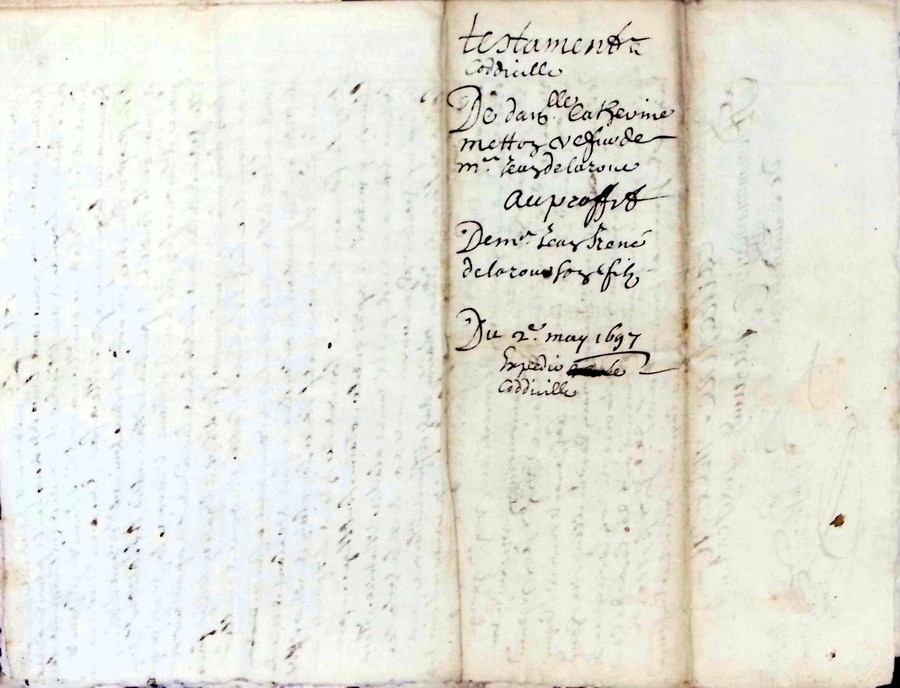 testament
Coddiville
De dam.lle Catherine
mettoy vefve de
m.re Jean delaroue
Au proffit
De m.r Jean René
delaroue son filz
Du 2.e may 1697
Expedié
Coddiville